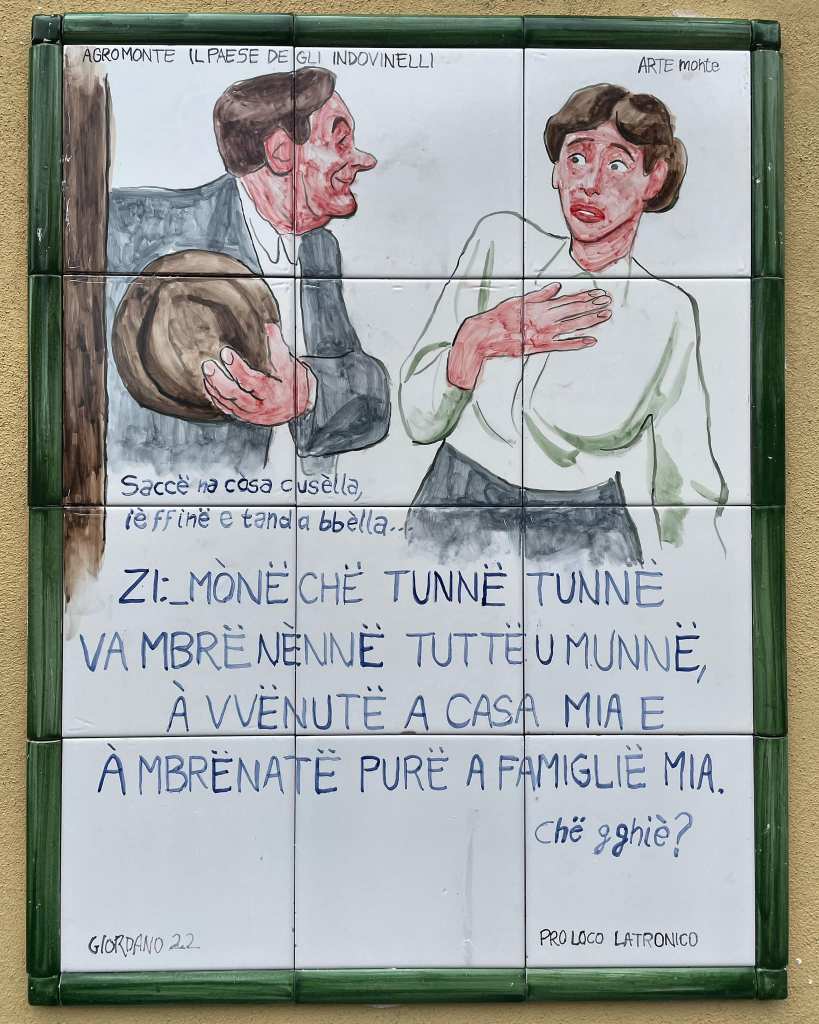 AGROMONTE IL PAESE DEGLI INDOVINELLI
ARTE monte
Saccë na còsa cusèlla,
ièffinë e tand a bbèlla...
ZI:_MÒNË CHË TUNNË TUNNË
VA MBRËNÈNNË TUTTË U MUNNË,
À VVËNUTË A CASA MIA E
À MBRËNATË PURË A FAMIGLIË MIA.
Chë gghiè?
GIORDANO 22
PRO LOCO LATRONICO